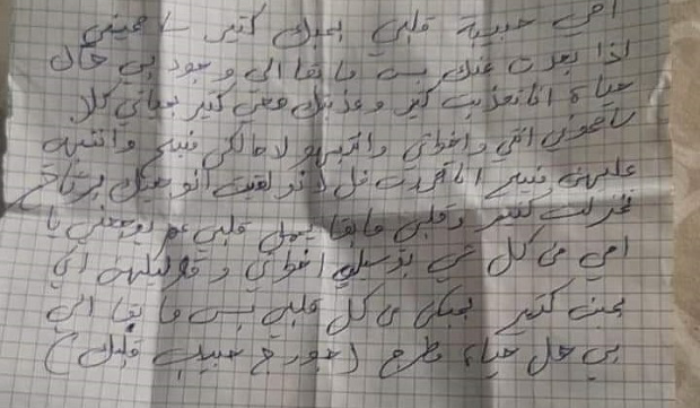 امي حبيبة قلبي بحبك كتير سامحيني
اذا بعدت عنك بس ما بقا الي وجود بي حال
حياة انا تعذبت كتير وعذبتك معي كتير بحياتي كلا
سامحوني انتي واخواتي وانتبهو لحالكن منيح وانتبه
عليهن منيح انا قررت فل لانو لقيت انو هيك برتاح
نخزلت كتير وقلبي ما بقا يحمل قلبي عم يوجعني يا
امي من كل شي بوسيلي اخواتي وقوليلهن اني
بحبن كتير بحبكن من كل قلبي بس ما بقا الي
بي حال حياة مطرح (جورج حبيب قلبك)